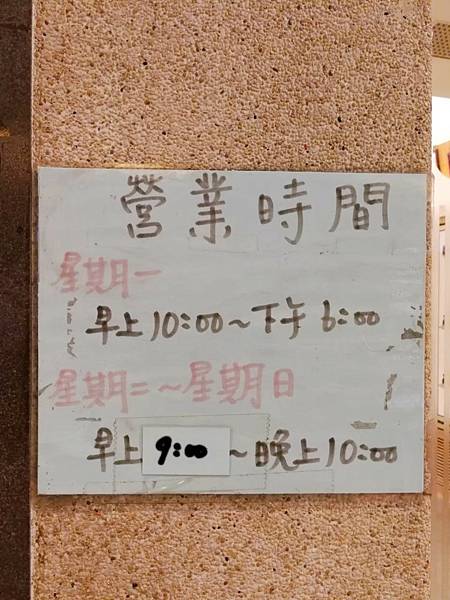 營業時間
星期一
早上10:00~下午6:00
星期二~星期日
早上9:00~晚上10:00